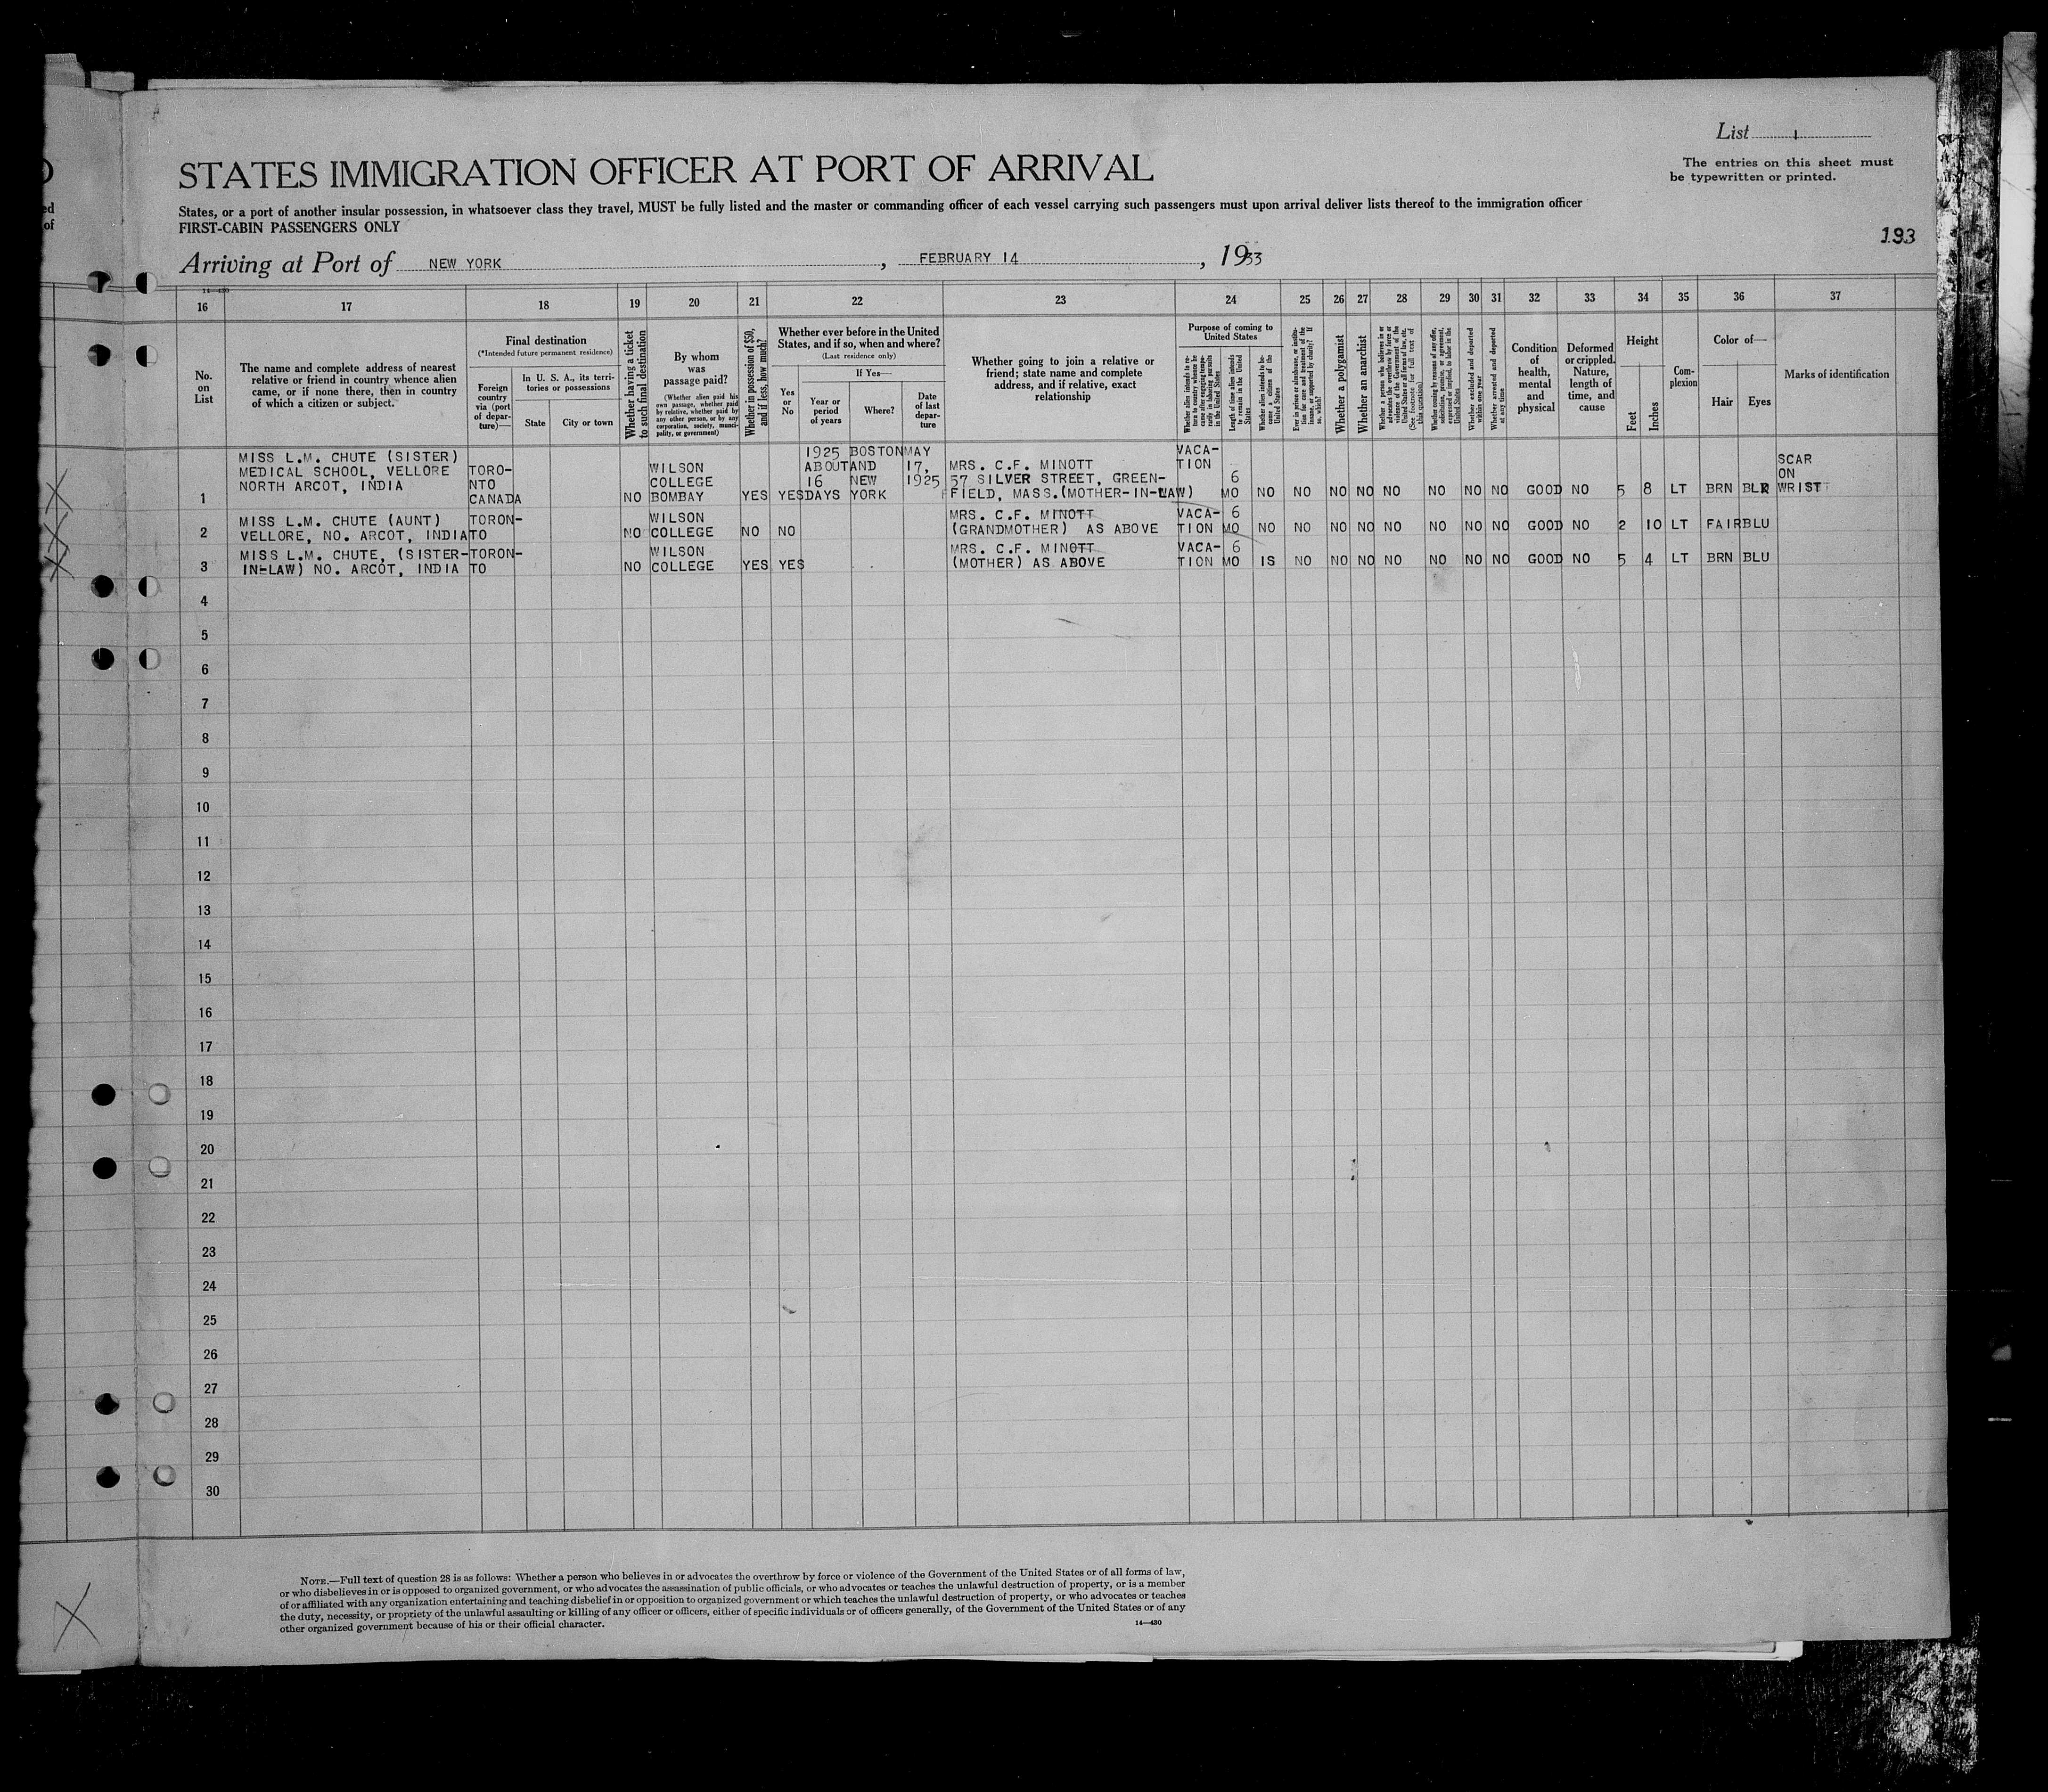 List 1
The entries on this sheet must
be typewritten or printed.
STATES IMMIGRATION OFFICER AT PORT OF ARRIVAL
States, or a port of another insular possession, in whatsoever class they travel, MUST be fully listed and the master or commanding officer of each vessel carrying such passengers must upon arrival deliver lists thereof to the immigration officer
FIRST-CABIN PASSENGERS ONLY
193
Arriving at Port of NEW YORK, FEBRUARY 14, 1933
16 17 18 19 20 21 22 23 24 25 26 27 28 29 30 31 32 33 34 35 36 37
No. on List
The name and complete address of nearest
relative or friend in country whence alien
came, or if none there, then in country
of which a citizen or subject.
Final destination
(*Intended future permanent residence)
Foreign
country
via (port
of depar-
ture)—
In U. S. A., its terri-
tories or possessions
State
City or town
Whether having a ticket
to such final destination
By whom
was
passage paid?
(Whether alien paid his
own passage, whether paid
by relative, whether paid by
any other person, or by any
corporation, society, munici-
pality, or government)
Whether in possession of $50,
and if less, how much?
Whether ever before in the United
States, and if so, when and where?
(Last residence only)
Yes
or
No
If Yes—
Year or
period
of years
Where?
Date
of last
depar-
ture
Whether going to join a relative or
friend; state name and complete
address, and if relative, exact
relationship
Purpose of coming to
United States
Length of time alien intends
to remain in the United
States
Whether alien intends to be-
come a citizen of the
United States
Whether a polygamist
Whether an anarchist
Whether excluded and deported
within one year
Whether arrested and deported
at any time
Condition
of
health,
mental
and
physical
Deformed
or crippled.
Nature,
length of
time, and
cause
Height
Feet
Inches
Com-
plexion
Color of—
Hair
Eyes
Marks of identification
MISS L.M. CHUTE (SISTER)
MEDICAL SCHOOL, VELLORE
NORTH ARCOT, INDIA
1
TORO-
NTO
CANADA
NO
WILSON
COLLEGE
BOMBAY
YES
YES
1925
ABOUT
16
DAYS
BOSTON
AND
NEW
YORK
MAY
17,
1925
MRS. C.F. MINOTT
57 SILVER STREET, GREEN-
FIELD, MASS.(MOTHER-IN-LAW)
VACA-
TION
6
MO
NO NO NO NO NO NO NO NO GOOD NO 5 8 LT BRN
SCAR
ON
WRIST
2
MISS L.M. CHUTE (AUNT)
VELLORE, NO. ARCOT, INDIA
TORON-
TO
NO
WILSON
COLLEGE
NO NO
MRS. C.F. MINOTT
(GRANDMOTHER) AS ABOVE
VACA-
TION
6
MO
NO NO NO NO NO NO NO NO GOOD NO 2 10 LT FAIR BLU
3
MISS L.M. CHUTE, (SISTER-
IN-LAW) NO. ARCOT, INDIA
TORON-
TO
NO
WILSON
COLLEGE
YES YES
MRS. C.F. MINOTT
(MOTHER) AS ABOVE
VACA-
TION
6
MO
IS NO NO NO NO NO NO NO GOOD NO 5 4 LT BRN BLU
4
5
6
7
8
9
10
11
12
13
14
15
16
17
18
19
20
21
22
23
24
25
26
27
28
29
30
NOTE.—Full text of question 28 is as follows: Whether a person who believes in or advocates the overthrow by force or violence of the Government of the United States or of all forms of law,
or who disbelieves in or is opposed to organized government, or who advocates the assassination of public officials, or who advocates or teaches the unlawful destruction of property, or is a member
of or affiliated with any organization entertaining and teaching disbelief in or opposition to organized government or which teaches the unlawful destruction of property, or who advocates or teaches
the duty, necessity, or propriety of the unlawful assaulting or killing of any officer or officers, either of specific individuals or of officers generally, of the Government of the United States or of any
other organized government because of his or their official character.
14—430